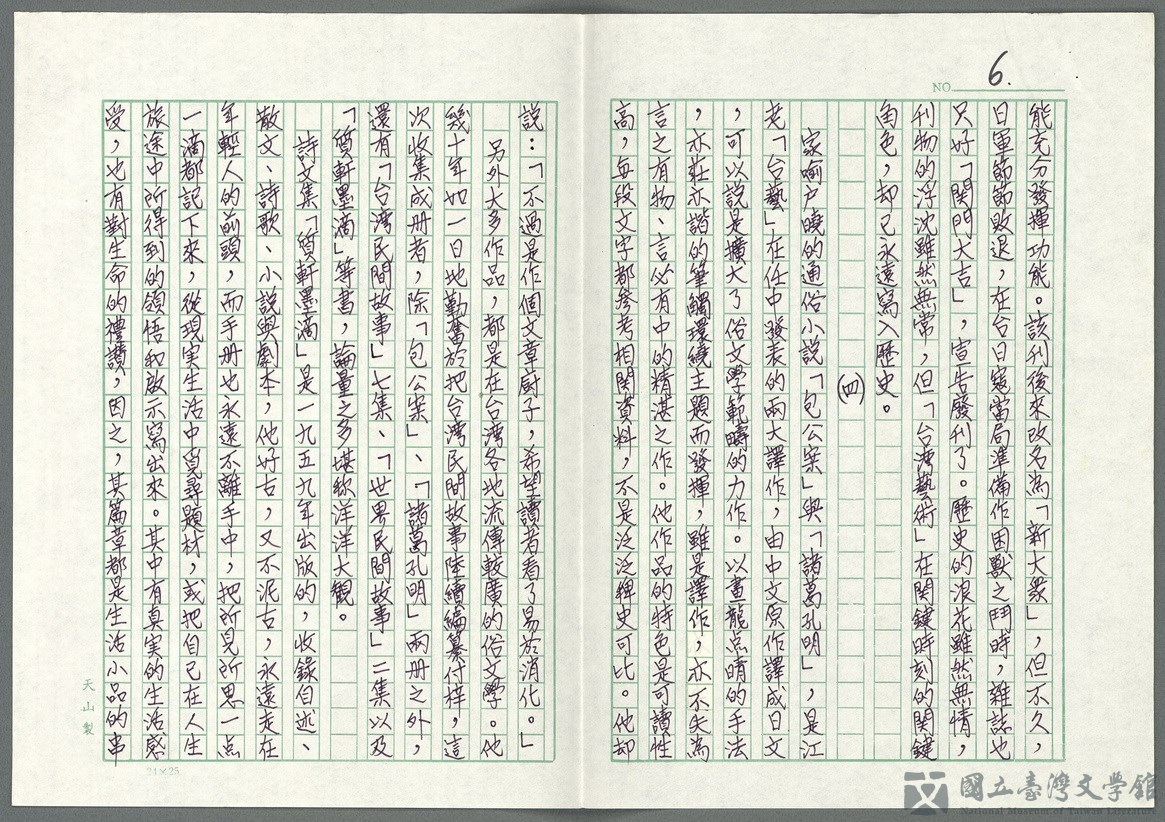 NO 6.
能充分發揮功能。該刊後來改名為「新大眾」，但不久，
日軍節節敗退，在台日寇當局準備作困獸之鬥時，雜誌也
只好「関門大吉」，宣告廢刊了。歷史的浪花雖然無情，
刊物的浮沈雖然無常，但「台湾藝術」在関鍵時刻的関鍵
角色，却已永遠寫入歷史。
(四)
家喻户曉的通俗小説「包公案」與「諸葛孔明」，是江
老「台藝」在任中發表的兩大譯作，由中文原作譯成日文
，可以説是擴大了俗文學範疇的力作。以畫龍点睛的手法
，亦莊亦諧的筆觸環繞主題而發揮，雖是譯作，亦不失為
言之有物、言必有中的精湛之作。他作品的特色是可讀性
高，每段文字都參考相関資料，不是泛泛稗史可比。他却
説：「不過是作個文章厨子，希望讀者看了易於消化。」
另外大多作品，都是在台湾各地流傳較廣的俗文學。他
幾十年如一日地勤奮於把台湾民間故事陸續編纂付梓，這
次收集成册者，除「包公案」、「諸葛孔明」兩册之外，
還有「台湾民間故事」七集、「世界民間故事」二集以及
「質軒墨滴」等書，論量之多堪称洋洋大觀。
詩文集「質軒墨滴」是一九五九年出版的，收錄自述、
散文、詩歌、小説與劇本，他好古，又不泥古，永遠走在
年輕人的前頭，而手册也永遠不離手中，把所見所思一点
一滴都記下來，從現実生活中覓尋題材，或把自已在人生
旅途中所得到的領悟和啟示寫出來。其中有真実的生活感
受，也有對生命的禮讚，因之，其篇章都是生活小品的串
天山製
24×25
國立臺灣文學館
National Museum of Taiwan Literature